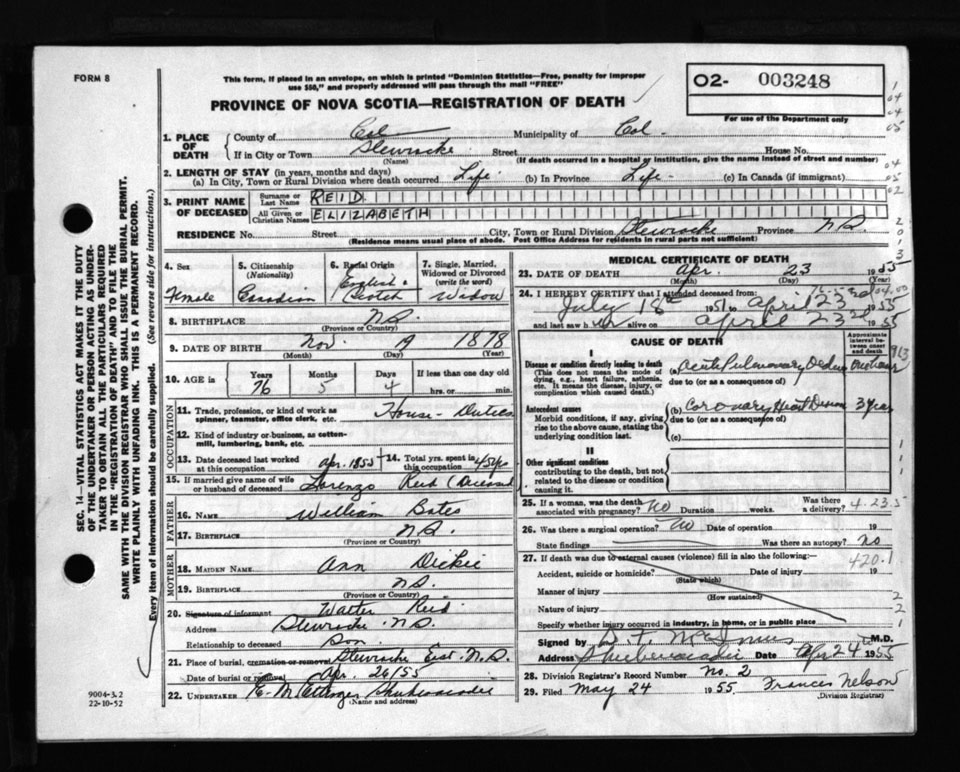 FORM 8
This form, if placed in an envelope, on which is printed "Dominion Statistics—Free, penalty for improper
use $50," and properly addressed will pass through the mail "FREE"
O2- 003248
For use of the Department only
PROVINCE OF NOVA SCOTIA—REGISTRATION OF DEATH
1. PLACE OF DEATH County of Col Municipality of Col.
If in City or Town Stewiacke Street House No.
(Name) (If death occurred in a hospital or institution, give the name instead of street and number)
2. LENGTH OF STAY (in years, months and days)
(a) In City, Town or Rural Division where death occurred Life (b) In Province Life (c) In Canada (if immigrant)
3. PRINT NAME OF DECEASED Surname or Last Name REID
All Given or Christian Names ELIZABETH
RESIDENCE No. Street City, Town or Rural Division Stewiacke Province N.S.
(Residence means usual place of abode. Post Office Address for residents in rural parts not sufficient)
4. Sex Female
5. Citizenship (Nationality) Canadian
6. Racial Origin English & Scotch
7. Single, Married, Widowed or Divorced (write the word) Widow
8. BIRTHPLACE N.S.
(Province or Country)
9. DATE OF BIRTH Nov. 19 1878
(Month) (Day) (Year)
10. AGE in Years 76 Months 5 Days 4 If less than one day old hrs. or min.
OCCUPATION
11. Trade, profession, or kind of work as spinner, teamster, office clerk, etc. House-Duties
12. Kind of industry or business, as cotton-mill, lumbering, bank, etc.
13. Date deceased last worked at this occupation Apr. 1955
14. Total yrs. spent in this occupation 45 yrs
15. If married give name of wife or husband of deceased Lorenzo Reid (Deceased)
FATHER
16. NAME William Bates
17. BIRTHPLACE N.S.
(Province or Country)
MOTHER
18. MAIDEN NAME Ann Dickie
19. BIRTHPLACE N.S.
(Province or Country)
20. Signature of informant Walter Reid
Address Stewiacke N.S.
Relationship to deceased Son
21. Place of burial, cremation or removal Stewiacke East N.S.
Date of burial or removal Apr. 26/55
22. UNDERTAKER Shubenacadie
(Name and address)
MEDICAL CERTIFICATE OF DEATH
23. DATE OF DEATH Apr. 23 1955
(Month) (Day) (Year)
24. I HEREBY CERTIFY that I attended deceased from:
July 18th 1951 to April 23rd 1955
and last saw her alive on April 23rd 1955
CAUSE OF DEATH
Approximate interval between onset and death
I
Disease or condition directly leading to death
(This does not mean the mode of dying, e.g., heart failure, asthenia, etc. It means the disease, injury, or complication which caused death.)
(a) Acute Pulmonary Oedema
due to (or as a consequence of)
Antecedent causes
Morbid conditions, if any, giving rise to the above cause, stating the underlying condition last.
(b) Coronary Heart Disease 3 years
due to (or as a consequence of)
(c)
II
Other significant conditions
contributing to the death, but not related to the disease or condition causing it.
25. If a woman, was the death associated with pregnancy? No Duration weeks. Was there a delivery?
4.23.5
26. Was there a surgical operation? No Date of operation 19
State findings Was there an autopsy? No
27. If death was due to external causes (violence) fill in also the following:—
420.1
Accident, suicide or homicide? Date of injury 19
(State which)
Manner of injury
(How sustained)
Nature of injury
Specify whether injury occurred in industry, in home, or in public place
Signed by D. F. McInnis M.D.
Address Shubenacadie Date Apr 24 1955
28. Division Registrar's Record Number No. 2
29. Filed May 24 1955 Frances Nelson
(Division Registrar)
9004-3.2
22-10-52
SEC. 14—VITAL STATISTICS ACT MAKES IT THE DUTY
OF THE UNDERTAKER OR PERSON ACTING AS UNDER-
TAKER TO OBTAIN ALL THE PARTICULARS REQUIRED
IN THE "REGISTRATION OF DEATH" AND TO FILE THE
SAME WITH THE DIVISION REGISTRAR WHO SHALL ISSUE THE BURIAL PERMIT.
WRITE PLAINLY WITH UNFADING INK. THIS IS A PERMANENT RECORD.
Every item of information should be carefully supplied. (See reverse side for instructions.)